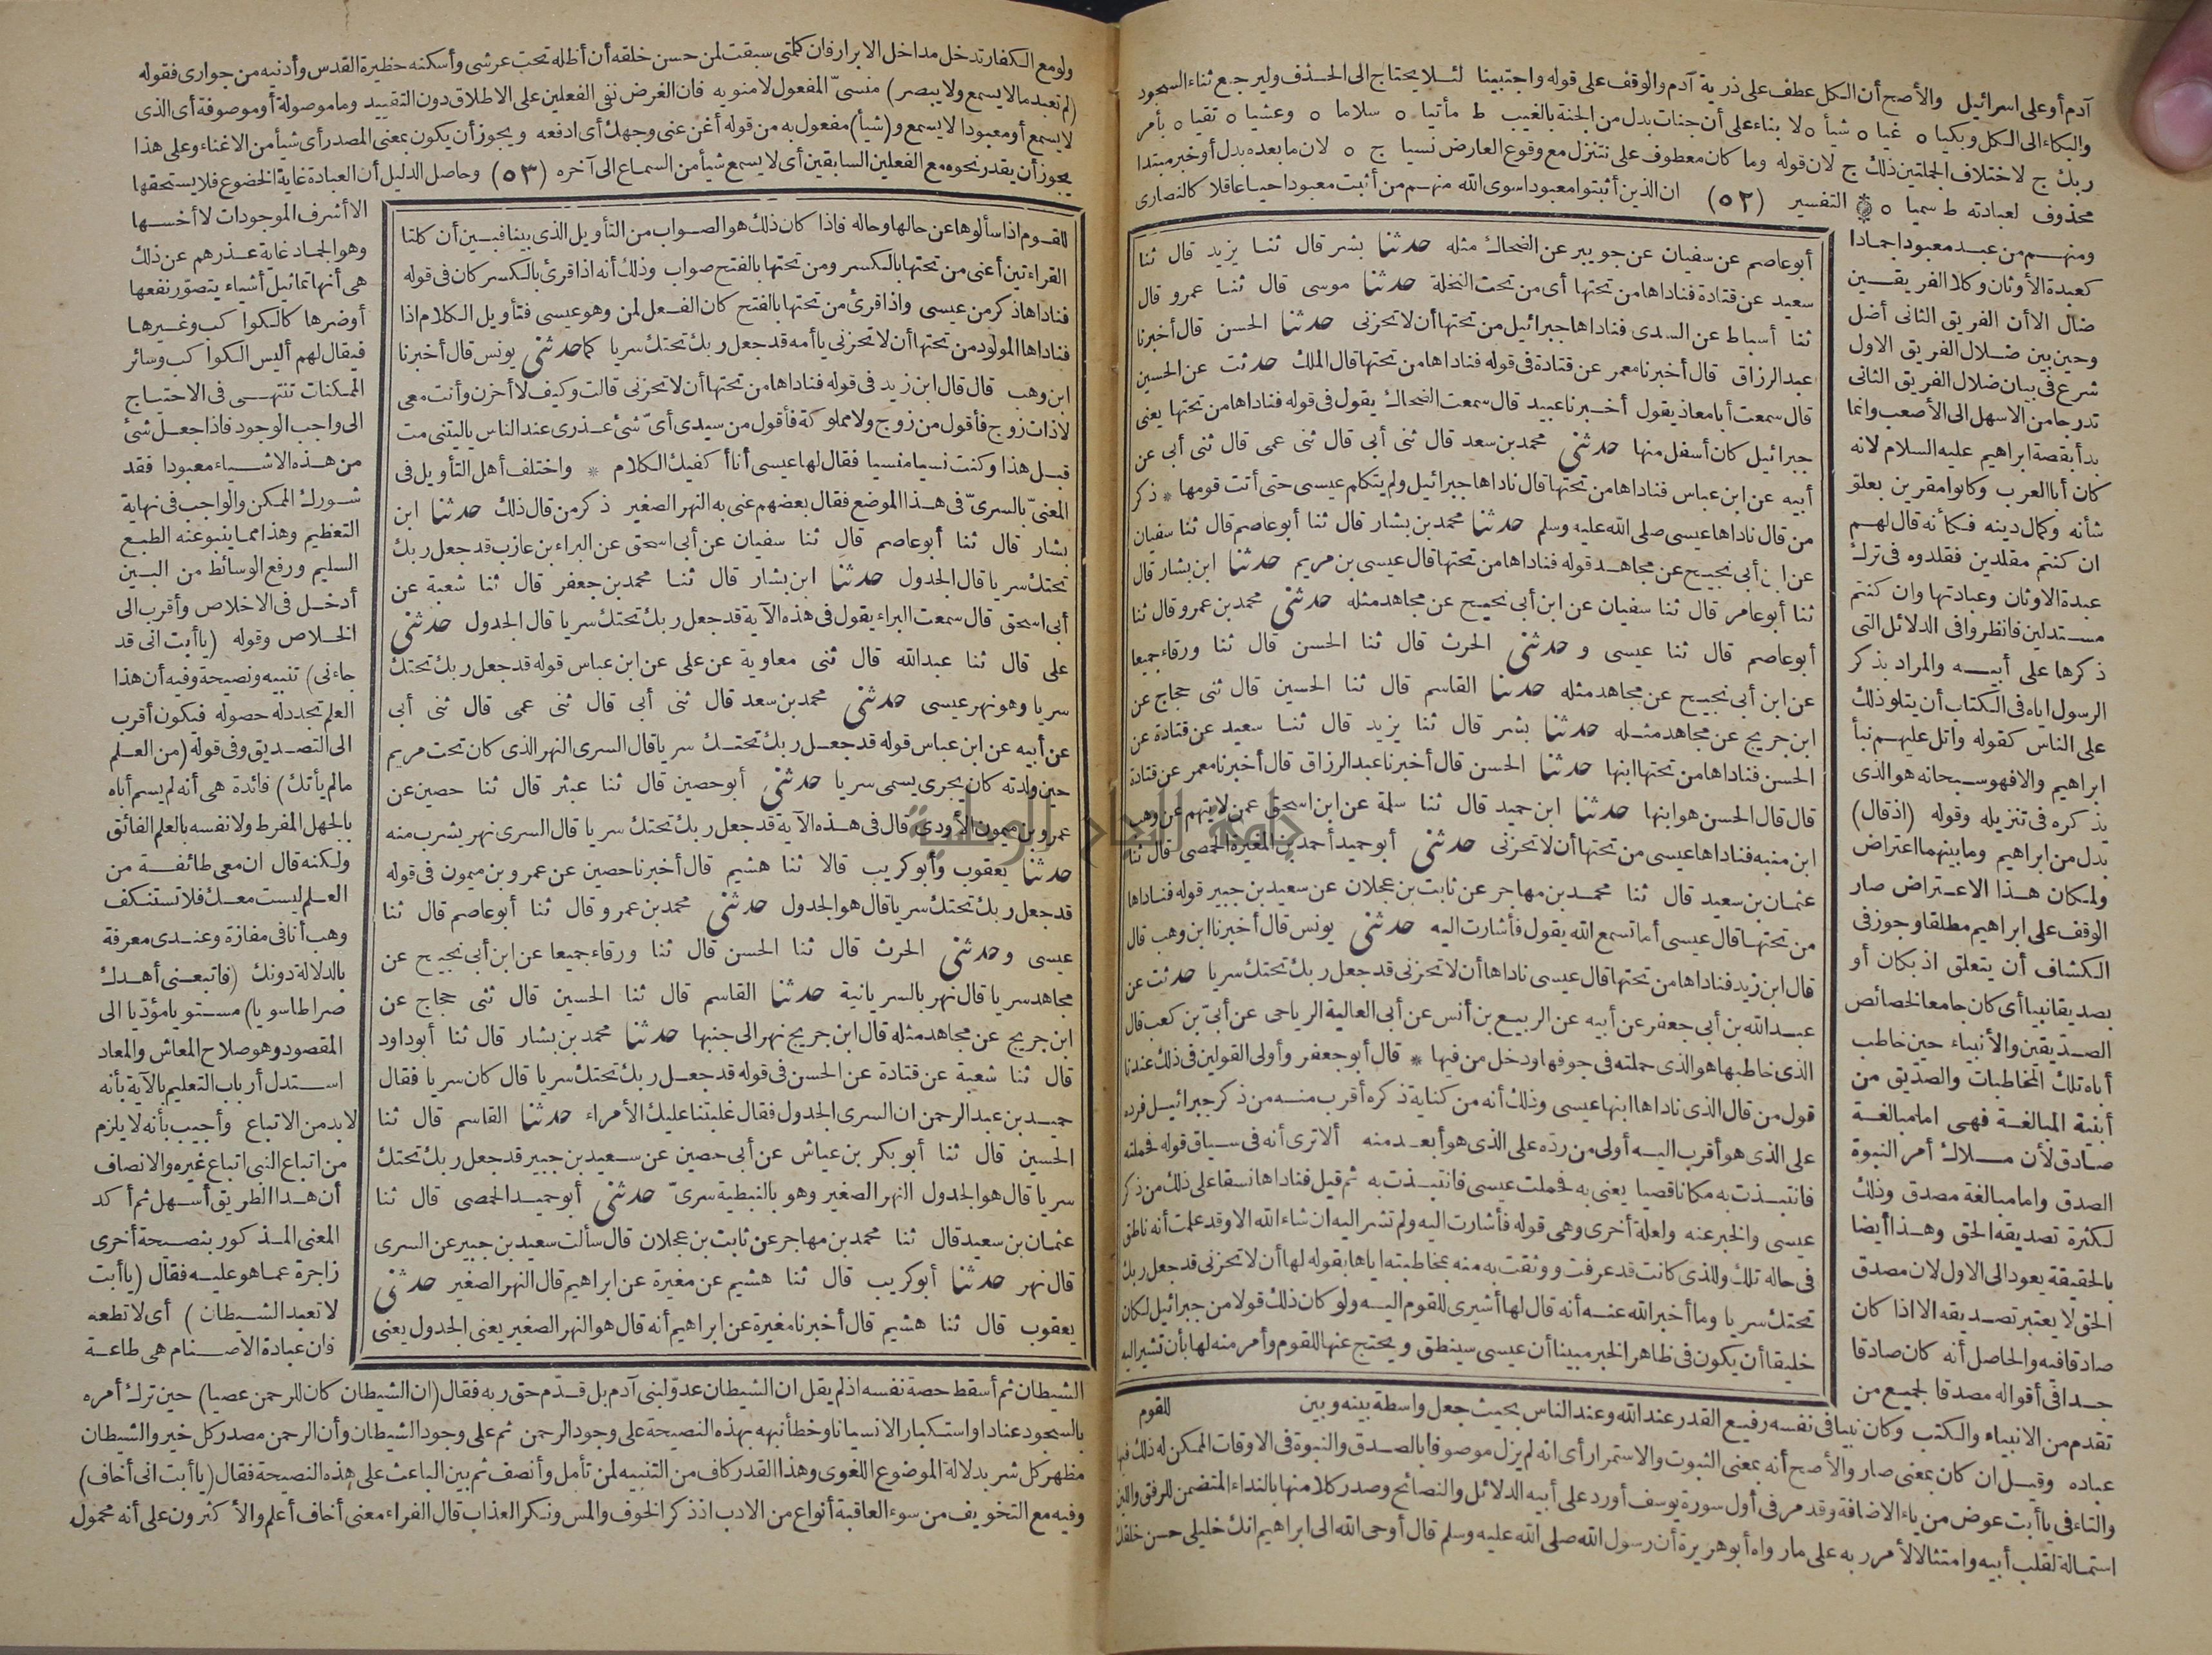 آدم أوعلى اسرائيل والأصح أن الكل عطف على ذرية آدم والوقف على قوله واجتبينا لئلا يحتاج الى الحذف وليرجع ثناء السجود
والبكاء الى الكل وبكيا ه غيا ه شيأ ه لا بناء على أن جنات بدل من الجنة بالغيب ط مأتيا ه سلاما ه وعشيا ه تقيا ه بأمر
ربك ج لاختلاف الجملتين ذلك ج لان قوله وما كان معطوف على نتنزل مع وقوع العارض نسيا ج ه لان ما بعده بدل أو خبر مبتدا
محذوف لعبادته ط سميا ه * التفسير (٥٢) ان الذين أثبتوا معبودا سوى الله منهم من أثبت معبودا حيا عاقلا كالنصارى
ومنهم من عبد معبودا جمادا
كعبدة الأوثان وكلا الفريقين
ضال الاأن الفريق الثانى أضل
وحين بين ضلال الفريق الاول
شرع فى بيان ضلال الفريق الثانى
تدرجا من الاسهل الى الأصعب وانما
بدأ بقصة ابراهيم عليه السلام لانه
كان أبا العرب وكانوا مقرين بعلو
شأنه وكمال دينه فكأنه قال لهم
ان كنتم مقلدين فقلدوه فى ترك
عبدة الاوثان وعبادتها وان كنتم
مستدلين فانظروا فى الدلائل التى
ذكرها على أبيه والمراد بذكر
الرسول اياه فى الكتاب أن يتلو ذلك
على الناس كقوله واتل عليهم نبأ
ابراهيم والا فهو سبحانه هو الذى
يذكره فى تنزيله وقوله (اذ قال)
بدل من ابراهيم وما بينهما اعتراض
ولمكان هذا الاعتراض صار
الوقف على ابراهيم مطلقا وجوز فى
الكشاف أن يتعلق اذ بكان أو
بصديقا نبيا أى كان جامعا لخصائص
الصديقين والأنبياء حين خاطب
أباه تلك المخاطبات والصديق من
أبنية المبالغة فهى اما مبالغة
صادق لأن ملاك أمر النبوة
الصدق واما مبالغة مصدق وذلك
لكثرة تصديقه الحق وهذا أيضا
بالحقيقة يعود الى الاول لان مصدق
الحق لا يعتبر تصديقه الا اذا كان
صادقا فيه والحاصل أنه كان صادقا
جدا فى أقواله مصدقا لجميع من
أبو عاصم عن سفيان عن جويبر عن الضحاك مثله حدثنا بشر قال ثنا يزيد قال ثنا
سعيد عن قتادة فناداها من تحتها أى من تحت النخلة حدثنا موسى قال ثنا عمرو قال
ثنا أسباط عن السدى فناداها جبرائيل من تحتها أن لا تحزنى حدثنا الحسن قال أخبرنا
عبد الرزاق قال أخبرنا معمر عن قتادة فى قوله فناداها من تحتها قال الملك حدثت عن الحسين
قال سمعت أبا معاذ يقول أخبرنا عبيد قال سمعت الضحاك يقول فى قوله فناداها من تحتها يعنى
جبرائيل كان أسفل منها حدثنى محمد بن سعد قال ثنى أبى قال ثنى عمى قال ثنى أبى عن
أبيه عن ابن عباس فناداها من تحتها قال ناداها جبرائيل ولم يتكلم عيسى حتى أتت قومها * ذكر
من قال ناداها عيسى صلى الله عليه وسلم حدثنا محمد بن بشار قال ثنا أبو عاصم قال ثنا سفيان
عن ابن أبى نجيح عن مجاهد قوله فناداها من تحتها قال عيسى بن مريم حدثنا ابن بشار قال
ثنا أبو عامر قال ثنا سفيان عن ابن أبى نجيح عن مجاهد مثله حدثنى محمد بن عمرو قال ثنا
أبو عاصم قال ثنا عيسى وحدثنى الحرث قال ثنا الحسن قال ثنا ورقاء جميعا
عن ابن أبى نجيح عن مجاهد مثله حدثنا القاسم قال ثنا الحسين قال ثنى حجاج عن
ابن جريج عن مجاهد مثله حدثنا بشر قال ثنا يزيد قال ثنا سعيد عن قتادة عن
الحسن فناداها من تحتها ابنها حدثنا الحسن قال أخبرنا عبد الرزاق قال أخبرنا معمر عن قتادة
قال قال الحسن هو ابنها حدثنا ابن حميد قال ثنا سلمة عن ابن اسحق عمن لا يتهم عن وهب
ابن منبه فناداها عيسى من تحتها أن لا تحزنى حدثنى أبو حميد أحمد بن المغيرة الحمصى قال ثنا
عثمان بن سعيد قال ثنا محمد بن مهاجر عن ثابت بن عجلان عن سعيد بن جبير قوله فناداها
من تحتها قال عيسى أما تسمع الله يقول فأشارت اليه حدثنى يونس قال أخبرنا ابن وهب قال
قال ابن زيد فناداها من تحتها قال عيسى ناداها أن لا تحزنى قد جعل ربك تحتك سريا حدثت عن
عبد الله بن أبى جعفر عن أبيه عن الربيع بن أنس عن أبى العالية الرياحى عن أبىّ بن كعب قال
الذى خاطبها هو الذى حملته فى جوفها ودخل من فيها * قال أبو جعفر وأولى القولين فى ذلك عندنا
قول من قال الذى ناداها ابنها عيسى وذلك أنه من كناية ذكره أقرب منه من ذكر جبرائيل فرده
على الذى هو أقرب اليه أولى من رده على الذى هو أبعد منه ألا ترى أنه فى سياق قوله فحملته
فانتبذت به مكانا قصيا يعنى به فحملت عيسى فانتبذت به ثم قيل فناداها نسقا على ذلك من ذكر
عيسى والخبر عنه ولعلة أخرى وهى قوله فأشارت اليه ولم تشر اليه ان شاء الله الا وقد علمت أنه ناطق
فى حاله تلك وللذى كانت قد عرفت ووثقت به منه بمخاطبته اياها بقوله لها أن لا تحزنى قد جعل ربك
تحتك سريا وما أخبر الله عنه أنه قال لها أشيرى للقوم اليه ولو كان ذلك قولا من جبرائيل لكان
خليقا أن يكون فى ظاهر الخبر مبينا أن عيسى سينطق ويحتج عنها للقوم وأمر منه لها بأن تشير اليه
للقوم
تقدم من الانبياء والكتب وكان نبيا فى نفسه رفيع القدر عند الله وعند الناس بحيث جعل واسطة بينه وبين
عباده وقيل ان كان بمعنى صار والأصح أنه بمعنى الثبوت والاستمرار أى انه لم يزل موصوفا بالصدق والنبوة فى الاوقات الممكن له ذلك فيها
والتاء فى يا أبت عوض من ياء الاضافة وقد مر فى أول سورة يوسف أورد على أبيه الدلائل والنصائح وصدر كلا منها بالنداء المتضمن للرفق واللين
استمالة لقلب أبيه وامتثالا لأمر ربه على ما رواه أبو هريرة أن رسول الله صلى الله عليه وسلم قال أوحى الله الى ابراهيم انك خليلى حسن خلقك
ولو مع الكفار تدخل مداخل الابرار فان كلمتى سبقت لمن حسن خلقه أن أظله تحت عرشى وأسكنه حظيرة القدس وأدنيه من جوارى فقوله
(لم تعبد ما لا يسمع ولا يبصر) منسىّ المفعول لا منويه فان الغرض نفى الفعلين على الاطلاق دون التقييد وما موصولة أو موصوفة أى الذى
لا يسمع أو معبودا لا يسمع و(شيأ) مفعول به من قوله أغن عنى وجهك أى ادفعه ويجوز أن يكون بمعنى المصدر أى شيأ من الاغناء وعلى هذا
يجوز أن يقدر نحوه مع الفعلين السابقين أى لا يسمع شيأ من السماع الى آخره (٥٣) وحاصل الدليل أن العبادة غاية الخضوع فلا يستحقها
للقوم اذا سألوها عن حالها وحاله فاذا كان ذلك هو الصواب من التأويل الذى بينا فبين أن كلتا
القراءتين أعنى من تحتها بالكسر ومن تحتها بالفتح صواب وذلك أنه اذا قرئ بالكسر كان فى قوله
فناداها ذكر من عيسى واذا قرئ من تحتها بالفتح كان الفعل لمن وهو عيسى فتأويل الكلام اذا
فناداها المولود من تحتها أن لا تحزنى يا أمه قد جعل ربك تحتك سريا كما حدثنى يونس قال أخبرنا
ابن وهب قال قال ابن زيد فى قوله فناداها من تحتها أن لا تحزنى قالت وكيف لا أحزن وأنت معى
لا ذات زوج فأقول من زوج ولا مملوكة فأقول من سيدى أىّ شئ عذرى عند الناس ياليتنى مت
قبل هذا وكنت نسيا منسيا فقال لها عيسى أنا أكفيك الكلام * واختلف أهل التأويل فى
المعنىّ بالسرىّ فى هذا الموضع فقال بعضهم عنى به النهر الصغير ذكر من قال ذلك حدثنا ابن
بشار قال ثنا أبو عاصم قال ثنا سفيان عن أبى اسحق عن البراء بن عازب قد جعل ربك
تحتك سريا قال الجدول حدثنا ابن بشار قال ثنا محمد بن جعفر قال ثنا شعبة عن
أبى اسحق قال سمعت البراء يقول فى هذه الآية قد جعل ربك تحتك سريا قال الجدول حدثنى
على قال ثنا عبد الله قال ثنى معاوية عن على عن ابن عباس قوله قد جعل ربك تحتك
سريا وهو نهر عيسى حدثنى محمد بن سعد قال ثنى أبى قال ثنى عمى قال ثنى أبى
عن أبيه عن ابن عباس قوله قد جعل ربك تحتك سريا قال السرى النهر الذى كان تحت مريم
حين ولدته كان يجرى يسمى سريا حدثنى أبو حصين قال ثنا عبثر قال ثنا حصين عن
عمرو بن ميمون الأودى قال فى هذه الآية قد جعل ربك تحتك سريا قال السرى نهر يشرب منه
حدثنا يعقوب وأبو كريب قالا ثنا هشيم قال أخبرنا حصين عن عمرو بن ميمون فى قوله
قد جعل ربك تحتك سريا قال هو الجدول حدثنى محمد بن عمرو قال ثنا أبو عاصم قال ثنا
عيسى وحدثنى الحرث قال ثنا الحسن قال ثنا ورقاء جميعا عن ابن أبى نجيح عن
مجاهد سريا قال نهر بالسريانية حدثنا القاسم قال ثنا الحسين قال ثنى حجاج عن
ابن جريج عن مجاهد مثله قال ابن جريج نهر الى جنبها حدثنا محمد بن بشار قال ثنا أبو داود
قال ثنا شعبة عن قتادة عن الحسن فى قوله قد جعل ربك تحتك سريا قال كان سريا فقال
حميد بن عبد الرحمن ان السرى الجدول فقال غلبتنا عليك الأمراء حدثنا القاسم قال ثنا
الحسين قال ثنا أبو بكر بن عياش عن أبى حصين عن سعيد بن جبير قد جعل ربك تحتك
سريا قال هو الجدول النهر الصغير وهو بالنبطية سرىّ حدثنى أبو حميد الحمصى قال ثنا
عثمان بن سعيد قال ثنا محمد بن مهاجر عن ثابت بن عجلان قال سألت سعيد بن جبير عن السرى
قال نهر حدثنا أبو كريب قال ثنا هشيم عن مغيرة عن ابراهيم قال النهر الصغير حدثنى
يعقوب قال ثنا هشيم قال أخبرنا مغيرة عن ابراهيم أنه قال هو النهر الصغير يعنى الجدول يعنى
الا أشرف الموجودات لا أخسها
وهو الجماد غاية عذرهم عن ذلك
هى أنها تماثيل أشياء يتصور نفعها
أو ضرها كالكواكب وغيرها
فيقال لهم أليس الكواكب وسائر
الممكنات تنتهى فى الاحتياج
الى واجب الوجود فاذا جعل شئ
من هذه الاشياء معبودا فقد
شورك الممكن والواجب فى نهاية
التعظيم وهذا مما ينبو عنه الطبع
السليم ورفع الوسائط من البين
أدخل فى الاخلاص وأقرب الى
الخلاص وقوله (يا أبت انى قد
جاءنى) تنبيه ونصيحة وفيه أن هذا
العلم تجدد له حصوله فيكون أقرب
الى التصديق وفى قوله (من العلم
ما لم يأتك) فائدة هى أنه لم يسم أباه
بالجهل المفرط ولا نفسه بالعلم الفائق
ولكنه قال ان معى طائفة من
العلم ليست معك فلا تستنكف
وهب أنا فى مفازة وعندى معرفة
بالدلالة دونك (فاتبعنى أهدك
صراطا سويا) مستويا مؤديا الى
المقصود وهو صلاح المعاش والمعاد
استدل أرباب التعليم بالآية بأنه
لا بد من الاتباع وأجيب بأنه لا يلزم
من اتباع النبى اتباع غيره والانصاف
أن هذا الطريق أسهل ثم أكد
المعنى المذكور بنصيحة أخرى
زاجرة عما هو عليه فقال (يا أبت
لا تعبد الشيطان) أى لا تطعه
فان عبادة الأصنام هى طاعة
الشيطان ثم أسقط حصة نفسه اذ لم يقل ان الشيطان عدوّ لبنى آدم بل قدّم حق ربه فقال (ان الشيطان كان للرحمن عصيا) حين ترك أمره
بالسجود عنادا واستكبارا لا نسيانا وخطأ نبهه بهذه النصيحة على وجود الرحمن ثم على وجود الشيطان وأن الرحمن مصدر كل خير والشيطان
مظهر كل شر بدلالة الموضوع اللغوى وهذا القدر كاف من التنبيه لمن تأمل وأنصف ثم بين الباعث على هذه النصيحة فقال (يا أبت انى أخاف)
وفيه مع التخويف من سوء العاقبة أنواع من الادب اذ ذكر الخوف والمس ونكر العذاب قال الفراء معنى أخاف أعلم والأكثرون على أنه محمول
جامعة النجاح الوطنية